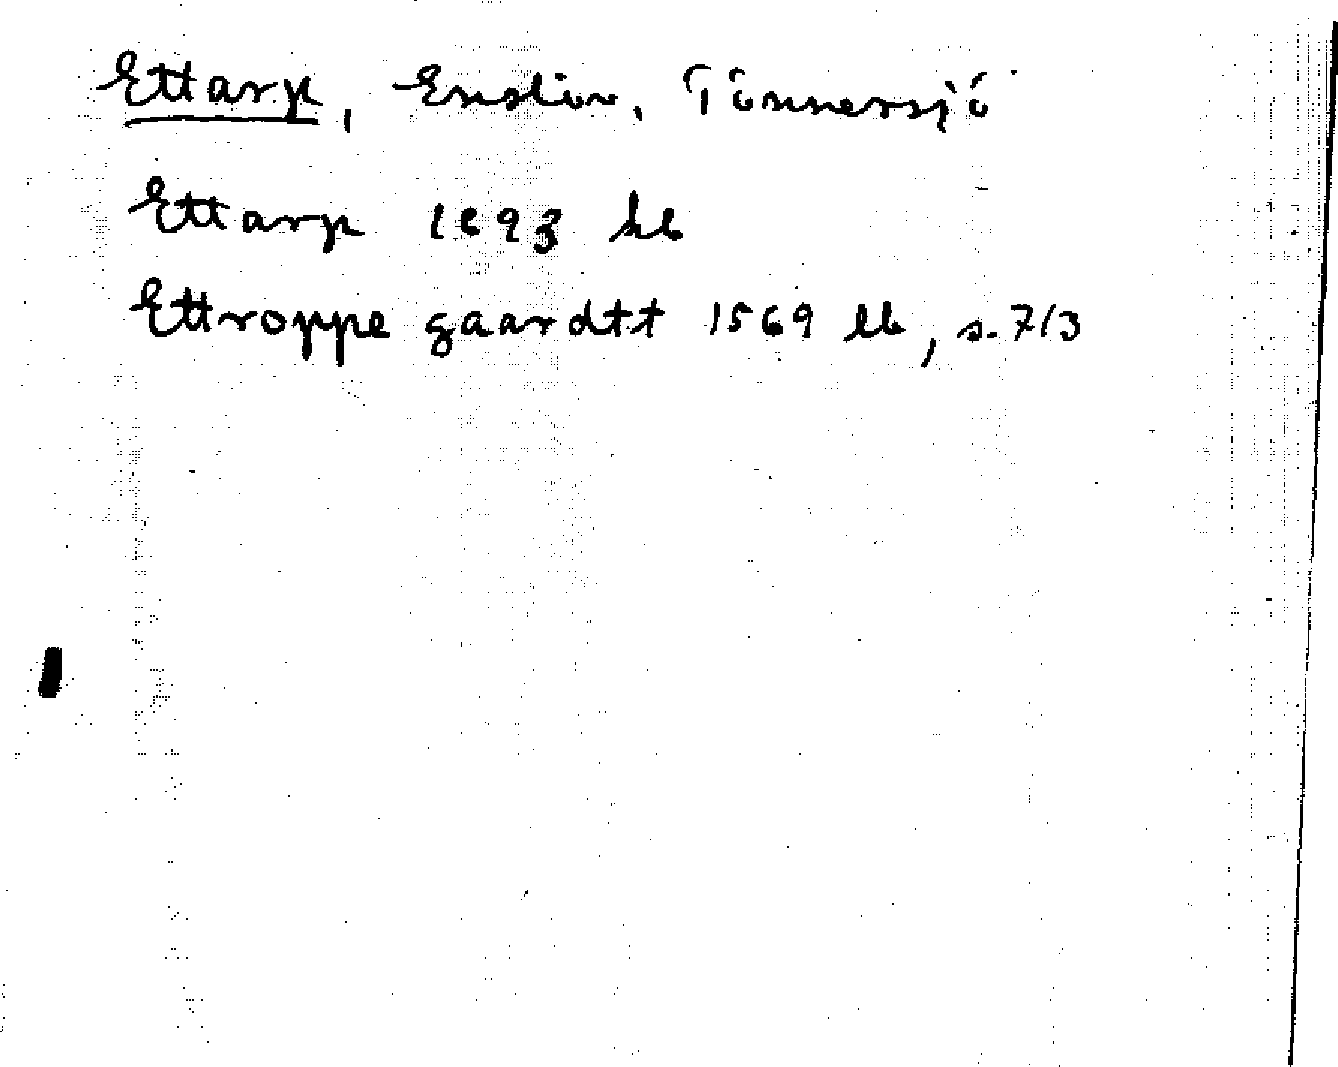 Ettarp, Enslöv, Tönnersjö
Ettarp 1693 hb
Ettroppe gaardtt 1569 lb, s. 713